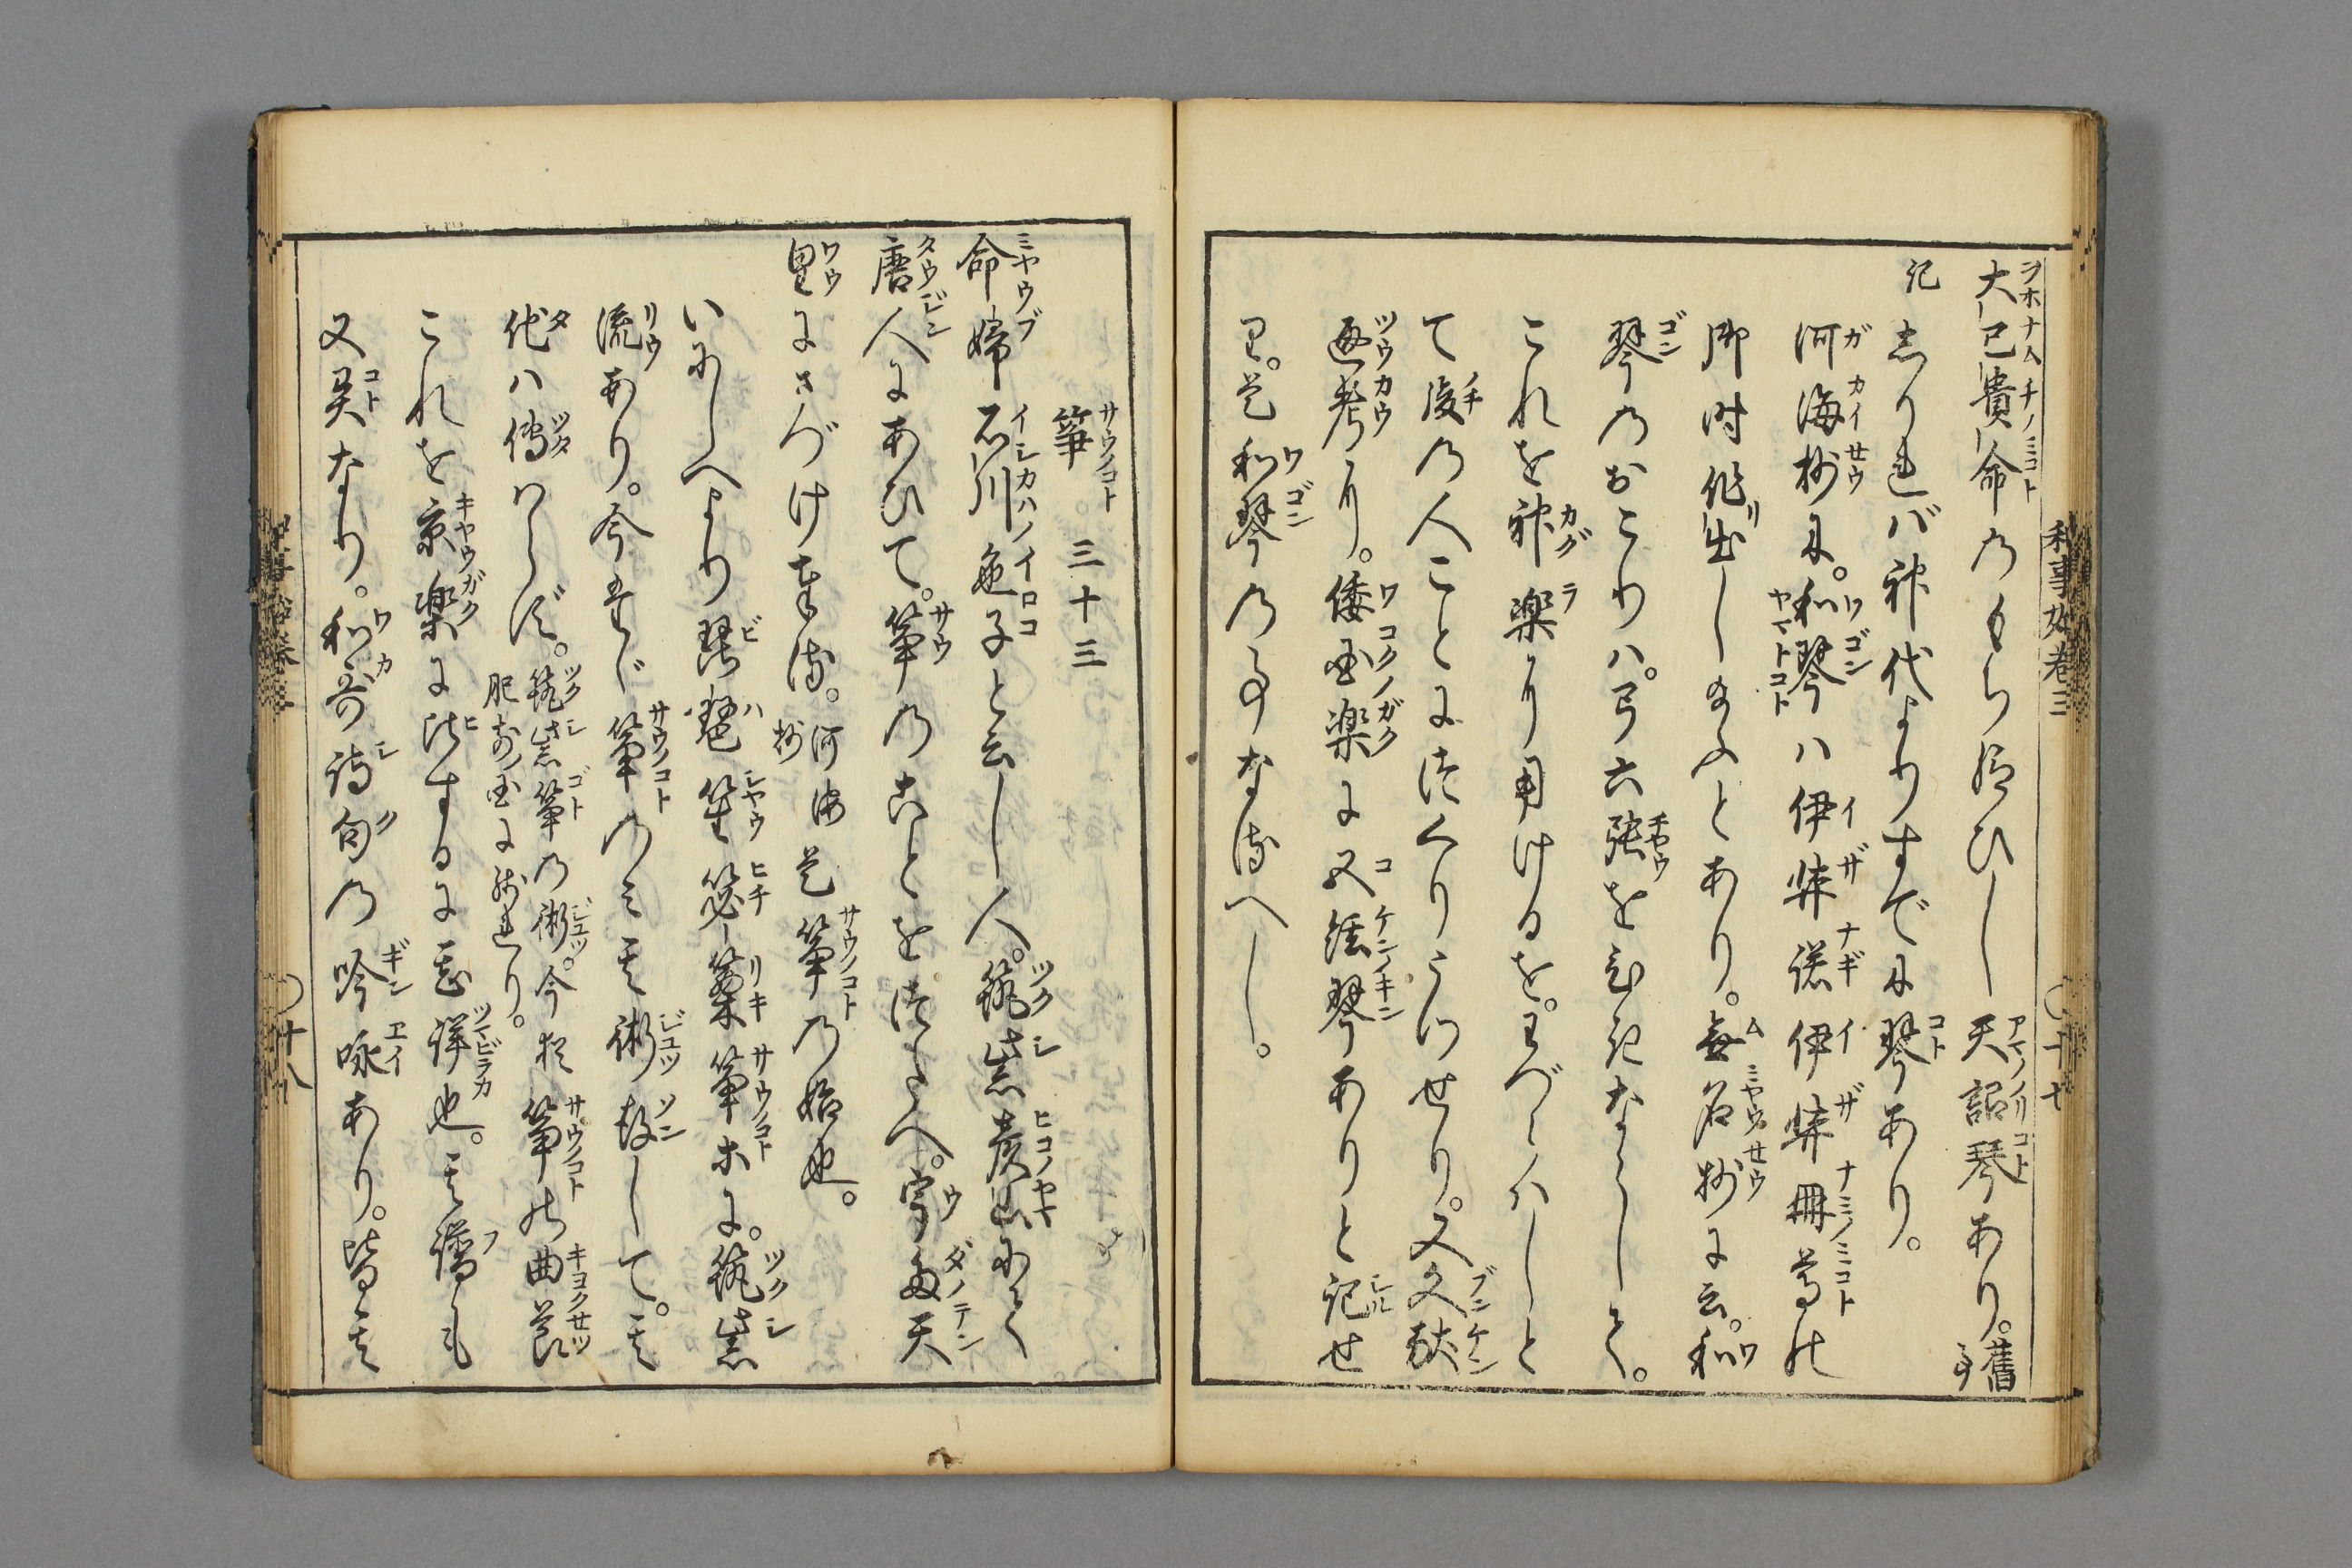 和事始巻三 〇十七
大已貴命のもち給ひし天詔琴あり。舊事
記 しかれバ神代よりすでに琴あり。
河海抄に。和琴ハ伊弉諾伊弉冊尊の
御時作出し給ふとあり。無名抄に云。和
琴のおこりハ。弓六張をひきならして。
これを神楽に用けるを。わづらハしと
て後の人ことにつくりうつせり。又文献
通考に。倭国楽に又絃琴ありと記せ
り。是和琴の事なるへし。
箏 三十三
命婦石川色子と云し人。筑紫彦山にて
唐人にあひて。箏のことをつたへ。宇多天
皇にさづけ奉る。河海抄 是箏の始也。
いにしへより琵琶笙篳篥箏ホに。筑紫
流あり。今たゞ箏のミ其術存して。其
他ハ傳ハらず。筑紫箏の術。今肥前国に残れり。 今按箏の曲節
これを京楽に比するに甚詳也。其譜も
又異なり。和哥詩句の吟咏あり。皆其
〇十八